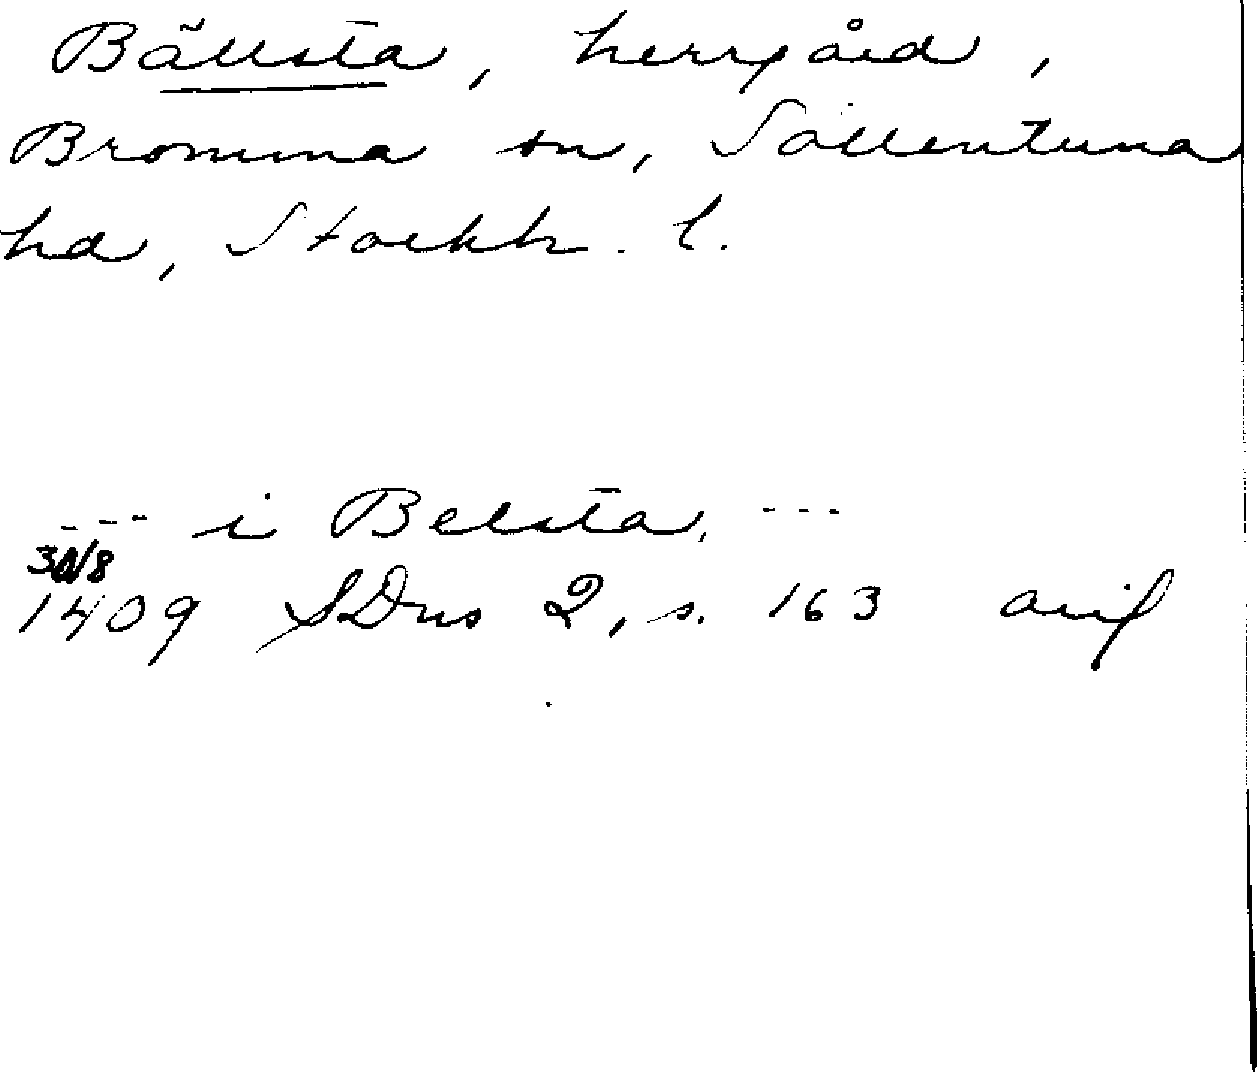 Bällsta, herrgård,
Bromma sn, Sollentuna
hd, Stockh. l.
--- i Belsta, ---
30/8
1409 SDns 2, s. 163 avs